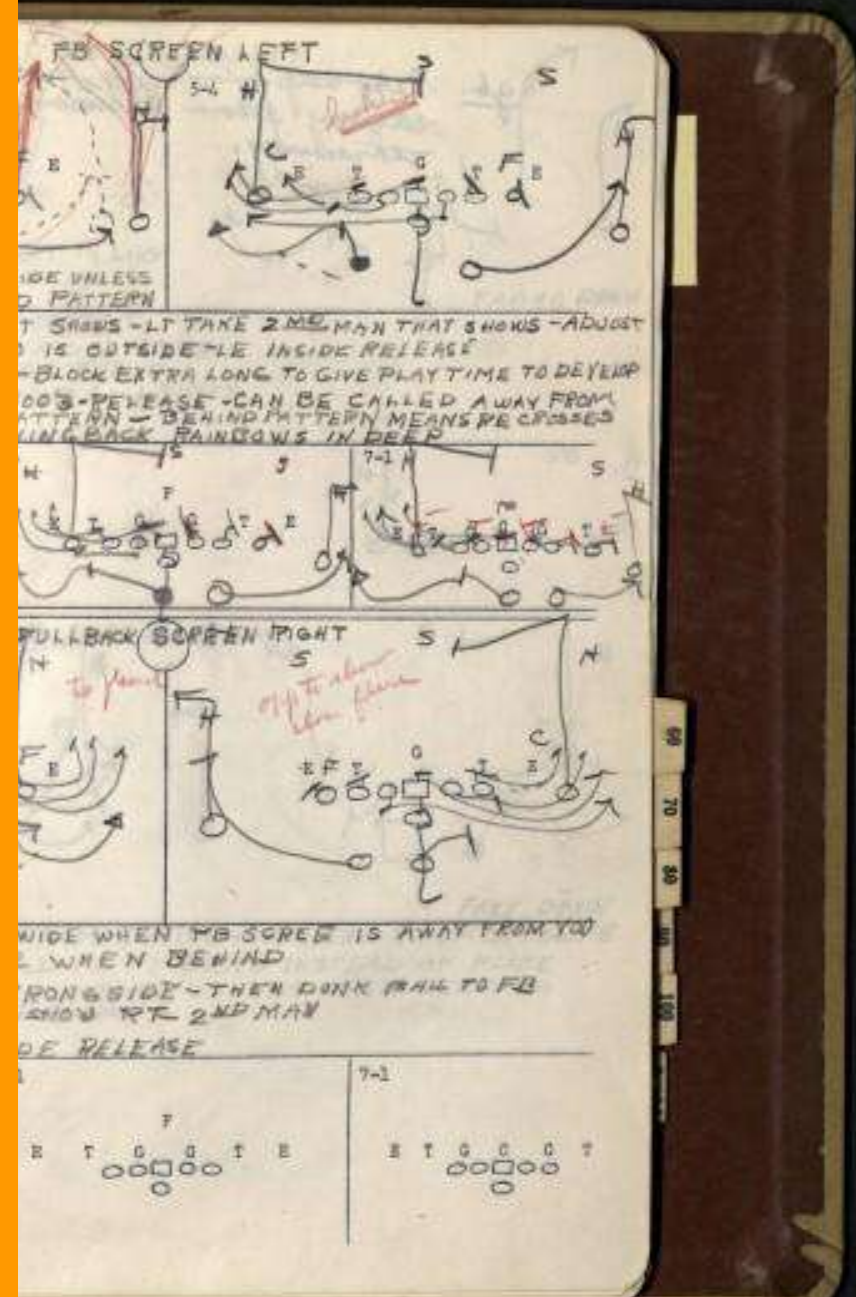 FB SCREEN LEFT
S
S
5-4 H
H
H
C
E T G T F E
E
F
IDE UNLESS
PATTERN
T SHOWS - LT TAKE 2ND MAN THAT SHOWS - ADJUST
IS OUTSIDE - LE INSIDE RELEASE
- BLOCK EXTRA LONG TO GIVE PLAY TIME TO DEVELOP
RELEASE - CAN BE CALLED AWAY FROM
ATTERN - BEHIND PATTERN MEANS HE CROSSES
INGBACK RAINBOWS IN DEEP
H
S
S
H
F
E T G G T E
7-1 H
S
H
FULLBACK SCREEN RIGHT
H
S
S
H
H
to
opp to show
G
C
E F T T E
F E
60
70
80
90
100
WIDE WHEN FB SCREE IS AWAY FROM YOU
WHEN BEHIND
RONGSIDE - THEN DONK BALL TO FB
SHOW RT 2ND MAN
DE RELEASE
7-1
F
E T G G T E
E T G C G T